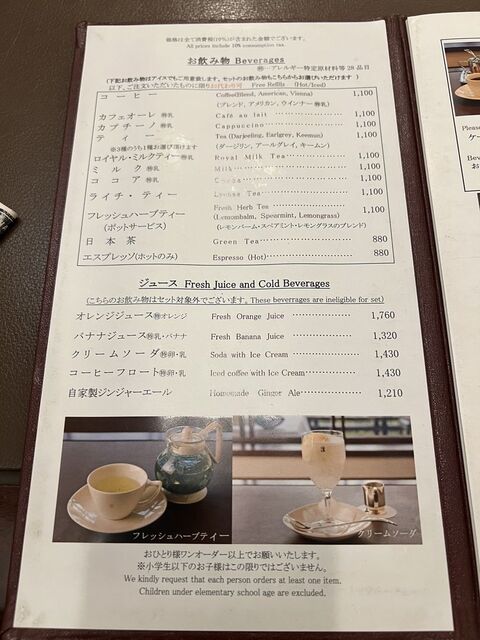 価格は全て消費税(10%)が含まれた金額でございます。
All prices include 10% consumption tax.
お飲み物 Beverages
㊕…アレルギー特定原材料等28品目
(下記お飲み物はアイスでもご用意致します。セットのお飲み物もこちらからお選びいただけます)
以下、ご注文いただいたものに限りお代わり可 Free Refills (Hot/Iced)
コーヒー Coffee(Blend, American, Vienna) 1,100
(ブレンド、アメリカン、ウインナー㊕乳)
カフェオーレ㊕乳 Café au lait 1,100
カプチーノ㊕乳 Cappuccino 1,100
ティー Tea (Darjeeling, Earlgrey, Keemun) 1,100
※3種のうち1種お選び頂けます (ダージリン、アールグレイ、キームン)
ロイヤル・ミルクティー㊕乳 Royal Milk Tea 1,100
ミルク㊕乳 Milk 1,100
ココア㊕乳 1,100
ライチ・ティー Tea 1,100
フレッシュハーブティー Fresh Herb Tea 1,100
(Lemonbalm, Spearmint, Lemongrass)
(ポットサービス) (レモンバーム・スペアミント・レモングラスのブレンド)
日本茶 Green Tea 880
エスプレッソ(ホットのみ) Espresso (Hot) 880
ジュース Fresh Juice and Cold Beverages
(こちらのお飲み物はセット対象外でございます。These beverrages are ineligible for set)
オレンジジュース㊕オレンジ Fresh Orange Juice 1,760
バナナジュース㊕乳・バナナ Fresh Banana Juice 1,320
クリームソーダ㊕卵・乳 Soda with Ice Cream 1,430
コーヒーフロート㊕卵・乳 Iced coffee with Ice Cream 1,430
自家製ジンジャーエール Homemade Ginger Ale 1,210
フレッシュハーブティー
クリームソーダ
おひとり様ワンオーダー以上でお願いいたします。
※小学生以下のお子様はこの限りではございません。
We kindly request that each person orders at least one item.
Children under elementary school age are excluded.
Please
ケー
Bev
お